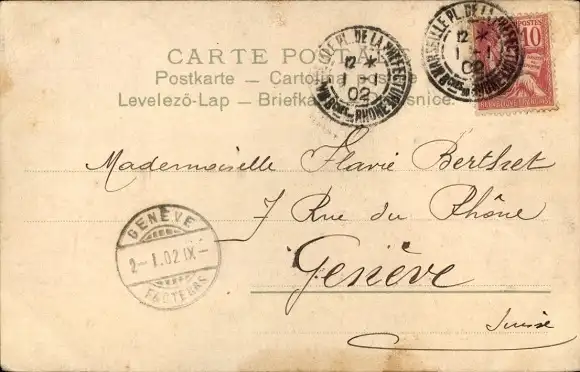 CARTE POSTALE
Postkarte — Cartolina postale
Levelező-Lap — Briefka
MARSEILLE PL. DE LA PREFECTURE
12 *
1 - 1
02
BOUCHES DU RHONE
MARSEILLE PL. DE LA PREFECTURE
12 *
1 - 1
02
POSTES
10
REPUBLIQUE FRANÇAISE
Mademoiselle Flavie Berthet
7 Rue du Rhône
Genève
Suisse
GENÈVE
2-1.02 IX-
FACTEURS